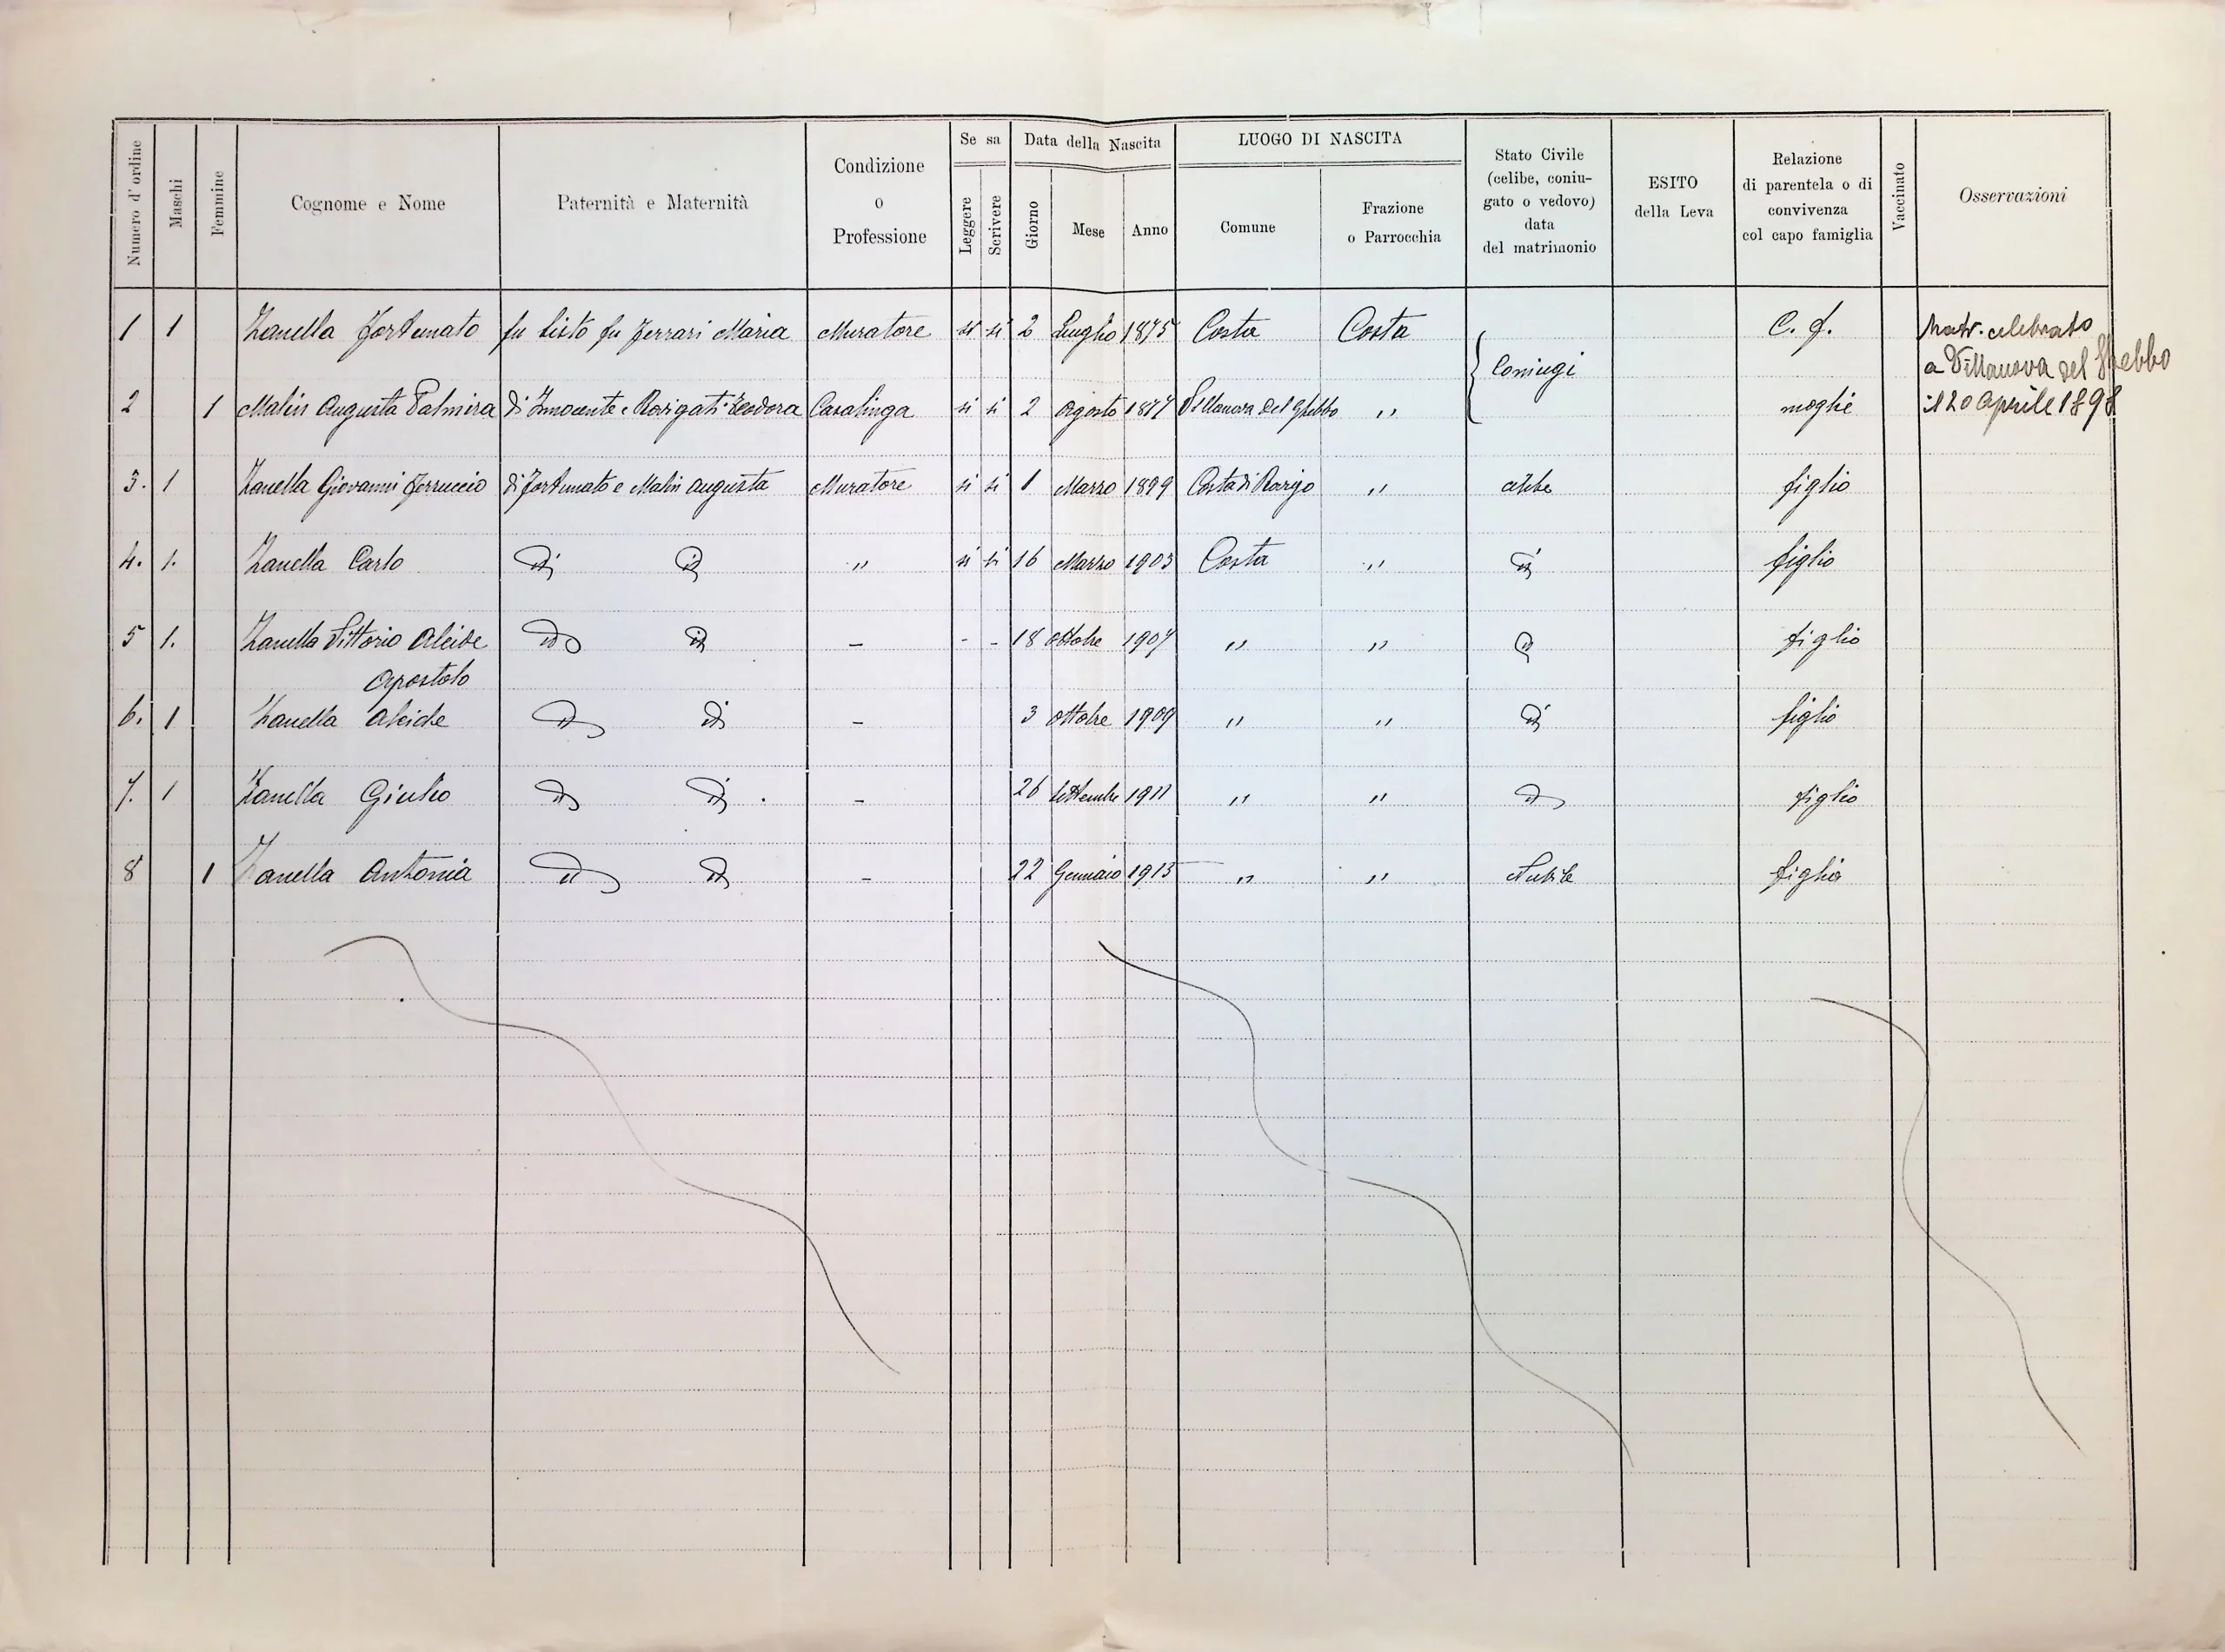 Numero d' ordine Maschi Femmine Cognome e Nome Paternità e Maternità Condizione o Professione Se sa Leggere Scrivere Data della Nascita Giorno Mese Anno LUOGO DI NASCITA Comune Frazione o Parrocchia Stato Civile (celibe, coniugato o vedovo) data del matrimonio ESITO della Leva Relazione di parentela o di convivenza col capo famiglia Vaccinato Osservazioni
1 1 Zanella Fortunato fu Sisto fu Ferrari Maria Muratore si si 2 Luglio 1875 Costa Costa C. f. Matr. celebrato
Coniugi a Villanova del Ghebbo
2 1 Malin Augusta Palmira di Innocente e Rovigati Teodora Casalinga si si 2 Agosto 1877 Villanova del Ghebbo ,, moglie il 20 Aprile 1898
3. 1 Zanella Giovanni Ferruccio di Fortunato e Malin Augusta Muratore si si 1 Marzo 1899 Costa di Rovigo ,, celibe figlio
4. 1. Zanella Carlo Di Di ,, si si 16 Marzo 1903 Costa ,, Di figlio
5 1. Zanella Vittorio Alcide Do Di - - - 18 ottobre 1907 ,, ,, Di figlio
Apostolo
6. 1 Zanella Alcide Di Di - 3 ottobre 1909 ,, ,, Di figlio
7. 1 Zanella Giulio Di Di - 26 Settembre 1911 ,, ,, Di figlio
8 1 Zanella Antonia Di Di - 22 Gennaio 1913 ,, ,, Nubile figlia